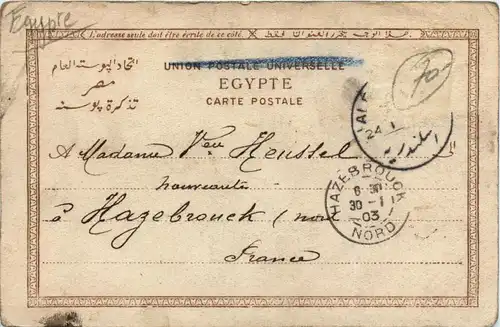 Egypte
L'adresse seule doit être écrite de ce côté
UNION POSTALE UNIVERSELLE
EGYPTE
CARTE POSTALE
اتحاد البوستة العام
مصر
تذكرة بوسته
70-
24 1
اسكندرية
A Madame Veu Heussel
nouveautés
à Hazebrouck (nord
France
HAZEBROUCK
30 - 1
03
NORD